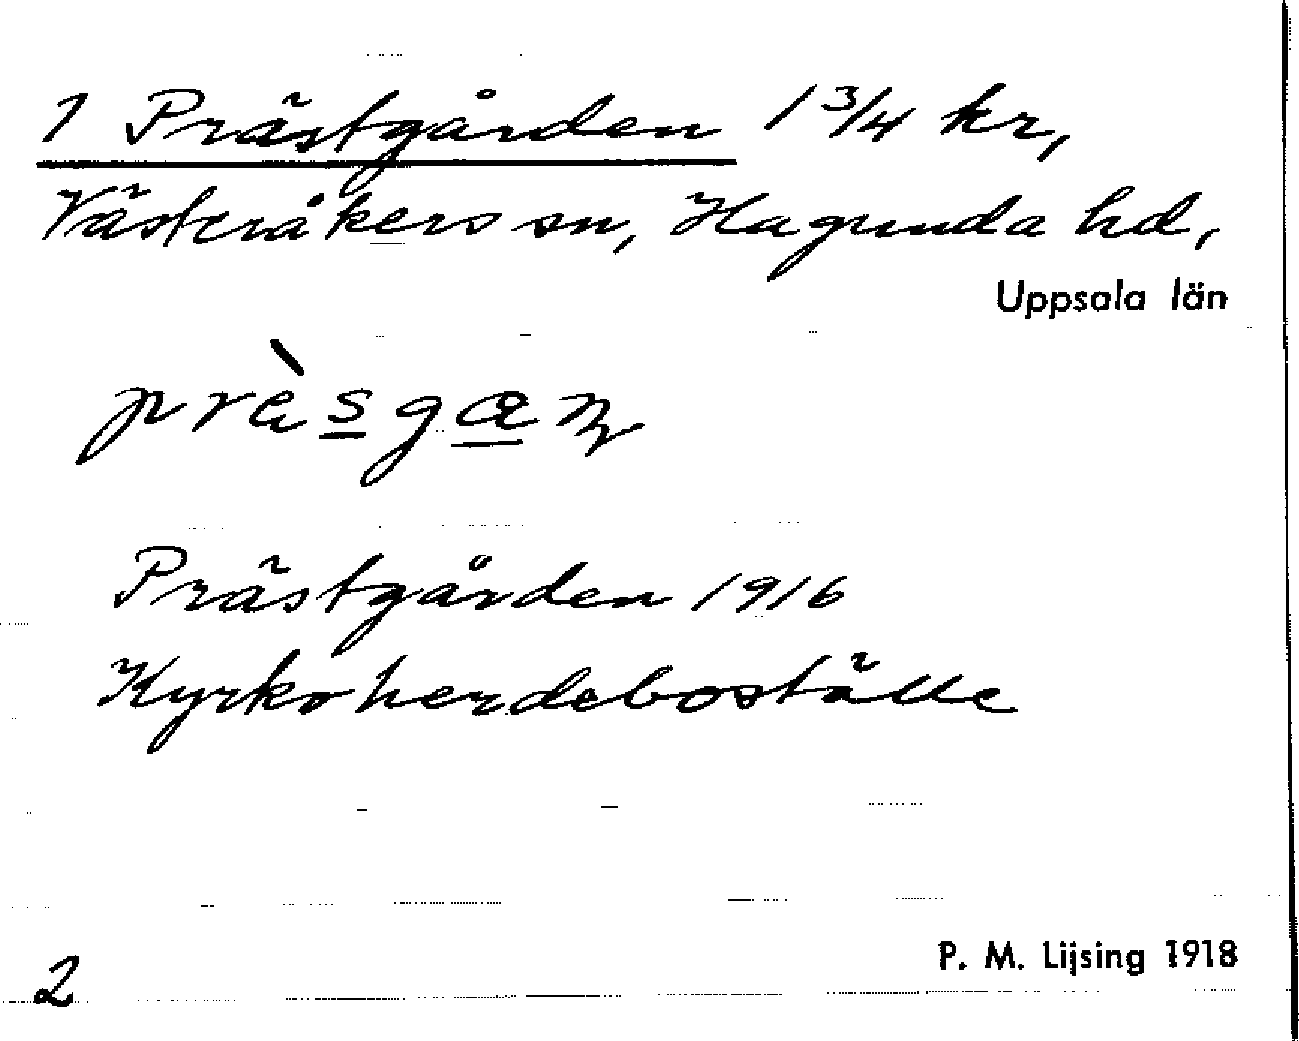 1 Prästgården 1 3/4 kr,
Västeråkers sn, Hagunda hd,
Uppsala län
präsgaɳ
Prästgården 1916
Kyrkoherdeboställe
P. M. Lijsing 1918
2